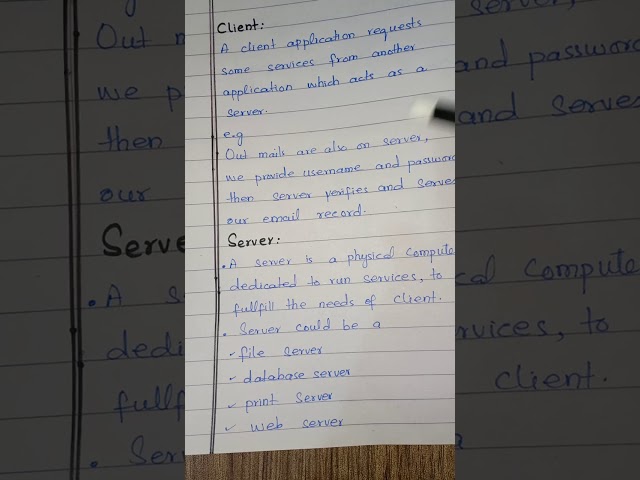 Client:
A client application requests
some services from another
application which acts as a
server.
e.g
Out mails are also on server,
we provide username and password
then server verifies and serves
our email record.
Server:
. A server is a physical Compute
dedicated to run services, to
fullfill the needs of client.
. Server could be a
✓ file server
✓ database server
✓ print Server
✓ web server